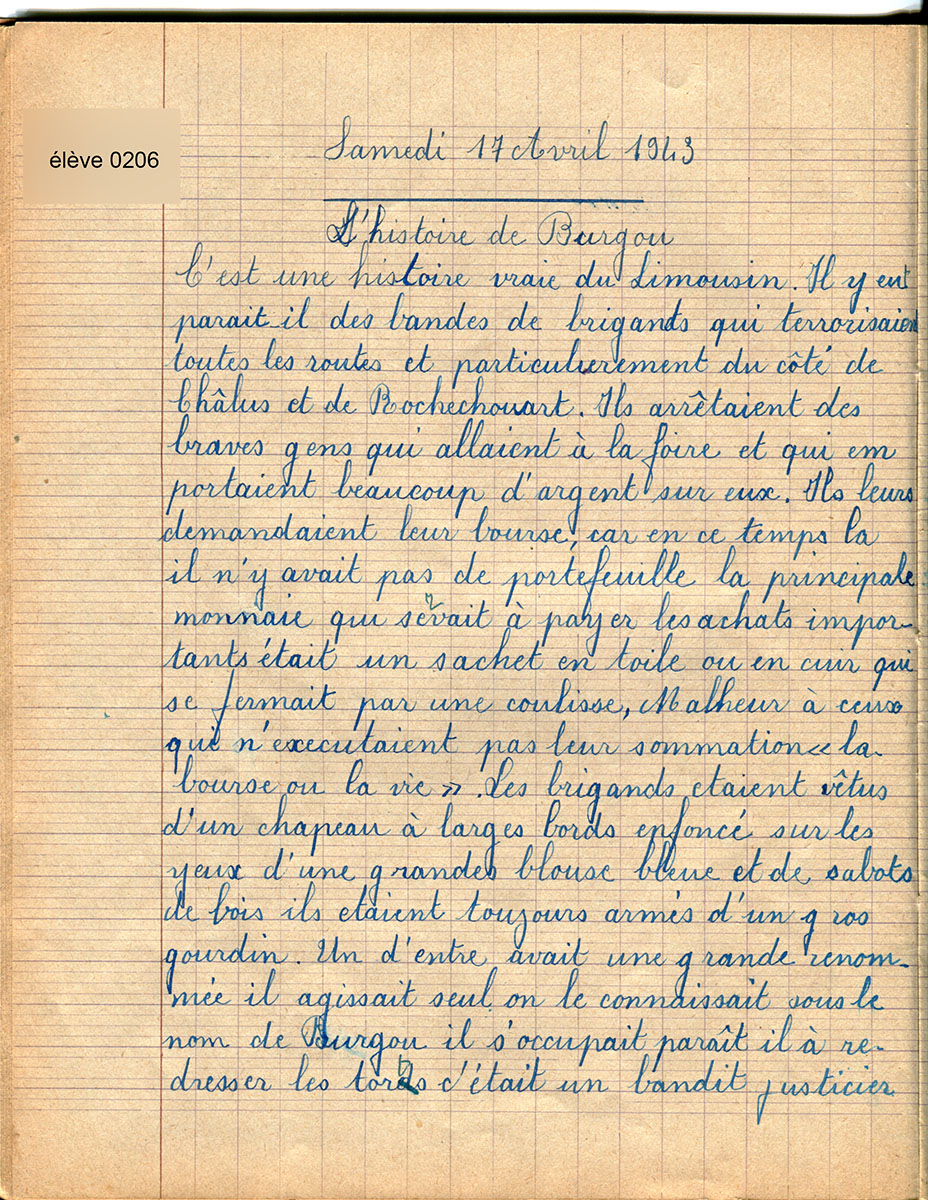 élève 0206
Samedi 17 Avril 1943
L'histoire de Burgou
C'est une histoire vraie du Limousin. Il y eut
parait-il des bandes de brigands qui terrorisaient
toutes les routes et particulierement du côté de
Châlus et de Rochechouart. Ils arrêtaient des
braves gens qui allaient à la foire et qui em
portaient beaucoup d'argent sur eux. Ils leurs
demandaient leur bourse, car en ce temps la
il n'y avait pas de portefeuille la principale
monnaie qui servait à payer les achats impor-
tants était un sachet en toile ou en cuir qui
se fermait par une coulisse, Malheur à ceux
qui n'executaient pas leur sommation « la
bourse ou la vie ». Les brigands etaient vêtus
d'un chapeau à larges bords enfoncé sur les
yeux d'une grandes blouse bleue et de sabots
de bois ils etaient toujours armés d'un gros
gourdin. Un d'entre avait une grande renom-
mée il agissait seul on le connaissait sous le
nom de Burgou il s'occupait paraît il à re-
dresser les torts c'était un bandit justicier